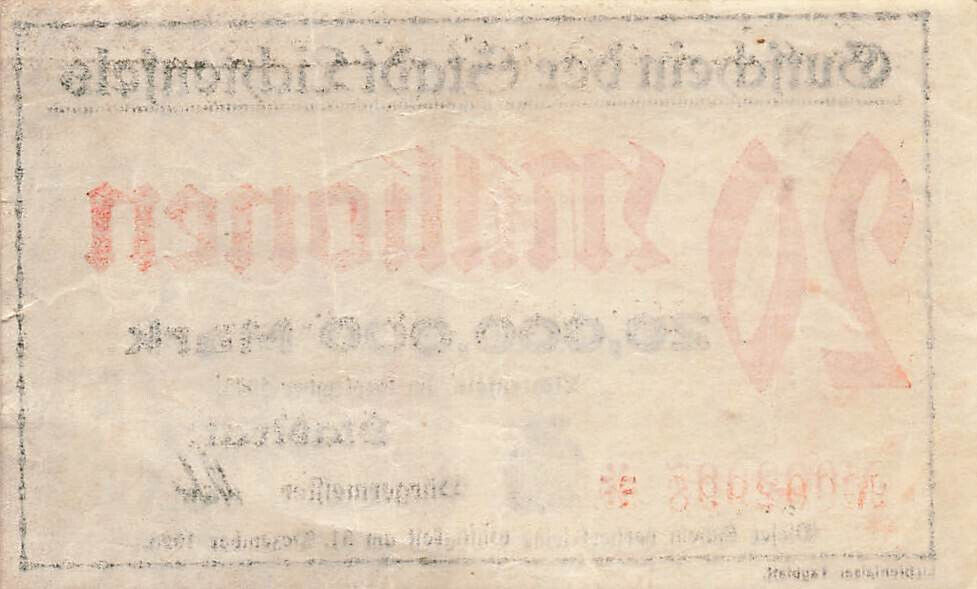 Gutschein der Stadt Lichtenfels
20 Millionen
20,000,000 Mark
Lichtenfels, im September 1923
Stadtrat
Bürgermeister
Dieser Schein verliert seine Gültigkeit am 31. Dezember 1923.
Lichtenfelser Tagblatt.